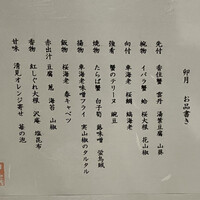 卯月　お品書き
先付　香住蟹　雲丹　湯葉豆腐　山葵
椀物　イバラ蟹　蛤　桜大根　花山椒
向付　車海老　桜鯛　縞海老
強肴　蟹のテリーヌ　豌豆
焼物　たらば蟹　白子筍　蕗味噌　蛍烏賊
揚物　車海老味噌フライ　実山椒のタルタル
飯物　桜海老　春キャベツ
赤出汁　豆腐　葱　海苔　山椒
香物　紅しぐれ大根　沢庵　塩昆布
甘味　清見オレンジ寄せ　苺の池